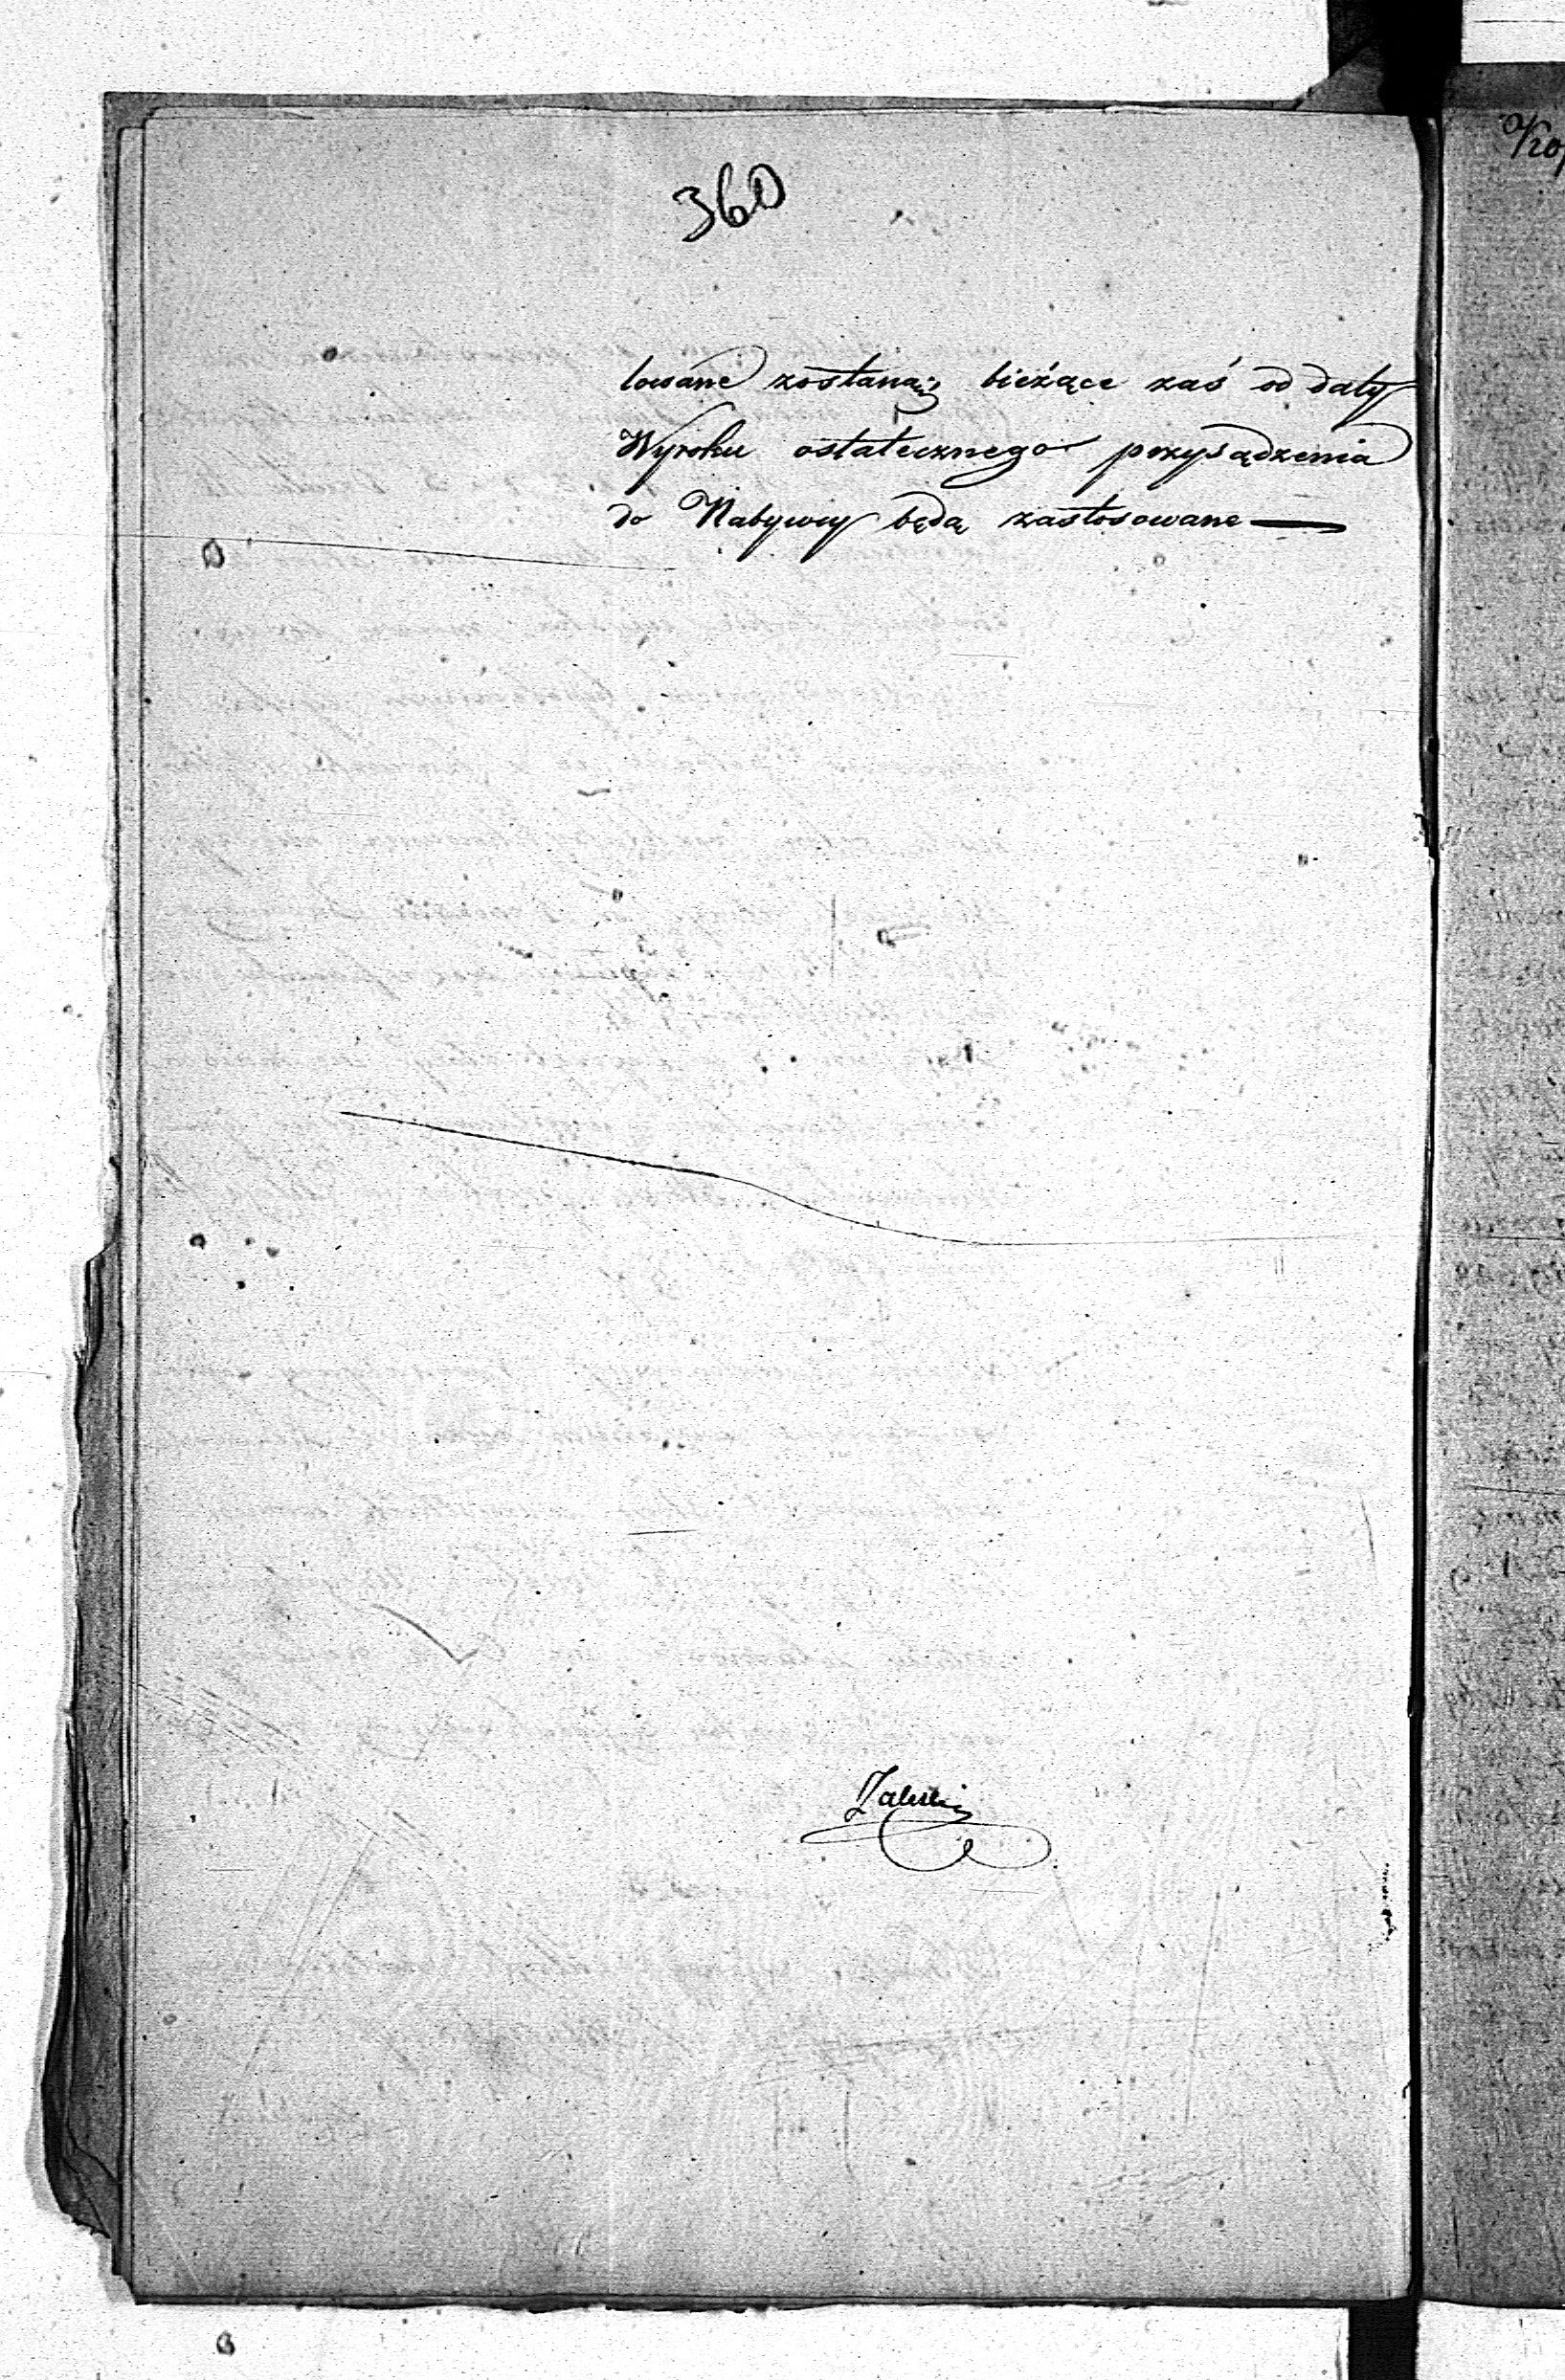 360
lowane zostaną; bieżące zaś od daty
Wyroku ostatecznego przysądzenia
do Nabywcy będą zastosowane